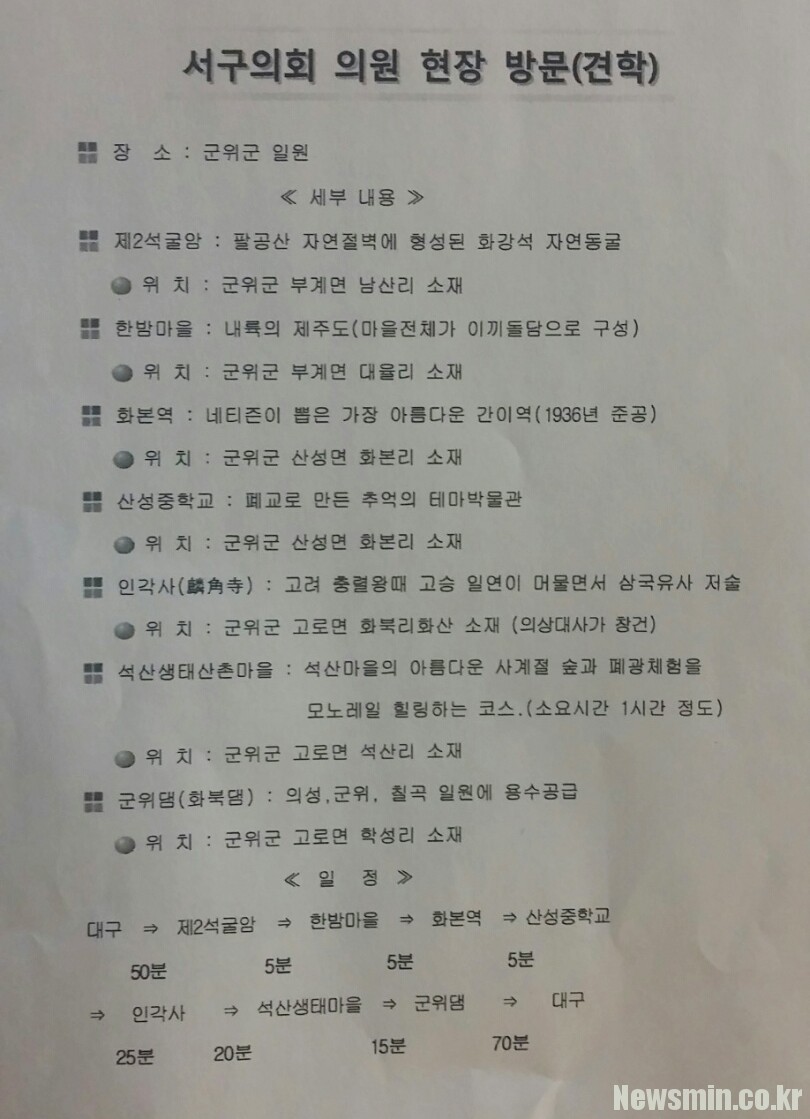 서구의회 의원 현장 방문(견학)
장 소 : 군위군 일원
≪ 세부 내용 ≫
제2석굴암 : 팔공산 자연절벽에 형성된 화강석 자연동굴
위 치 : 군위군 부계면 남산리 소재
한밤마을 : 내륙의 제주도(마을전체가 이끼돌담으로 구성)
위 치 : 군위군 부계면 대율리 소재
화본역 : 네티즌이 뽑은 가장 아름다운 간이역(1936년 준공)
위 치 : 군위군 산성면 화본리 소재
산성중학교 : 폐교로 만든 추억의 테마박물관
위 치 : 군위군 산성면 화본리 소재
인각사(麟角寺) : 고려 충렬왕때 고승 일연이 머물면서 삼국유사 저술
위 치 : 군위군 고로면 화북리화산 소재 (의상대사가 창건)
석산생태산촌마을 : 석산마을의 아름다운 사계절 숲과 폐광체험을
모노레일 힐링하는 코스.(소요시간 1시간 정도)
위 치 : 군위군 고로면 석산리 소재
군위댐(화북댐) : 의성,군위, 칠곡 일원에 용수공급
위 치 : 군위군 고로면 학성리 소재
≪ 일 정 ≫
대구 ⇒ 제2석굴암 ⇒ 한밤마을 ⇒ 화본역 ⇒ 산성중학교
50분 5분 5분 5분
⇒ 인각사 ⇒ 석산생태마을 ⇒ 군위댐 ⇒ 대구
25분 20분 15분 70분
Newsmin.co.kr